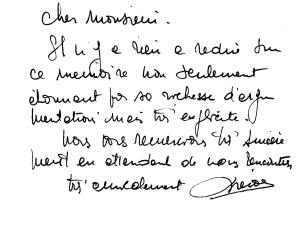 Cher Monsieur.
Il n'y a rien a redire sur
ce memoire non seulement
étonnant par sa richesse d'argu
mentation mais très explicite.
Nous vous remercions très sincère
ment en attendant de nous rencontrer
très amicalement